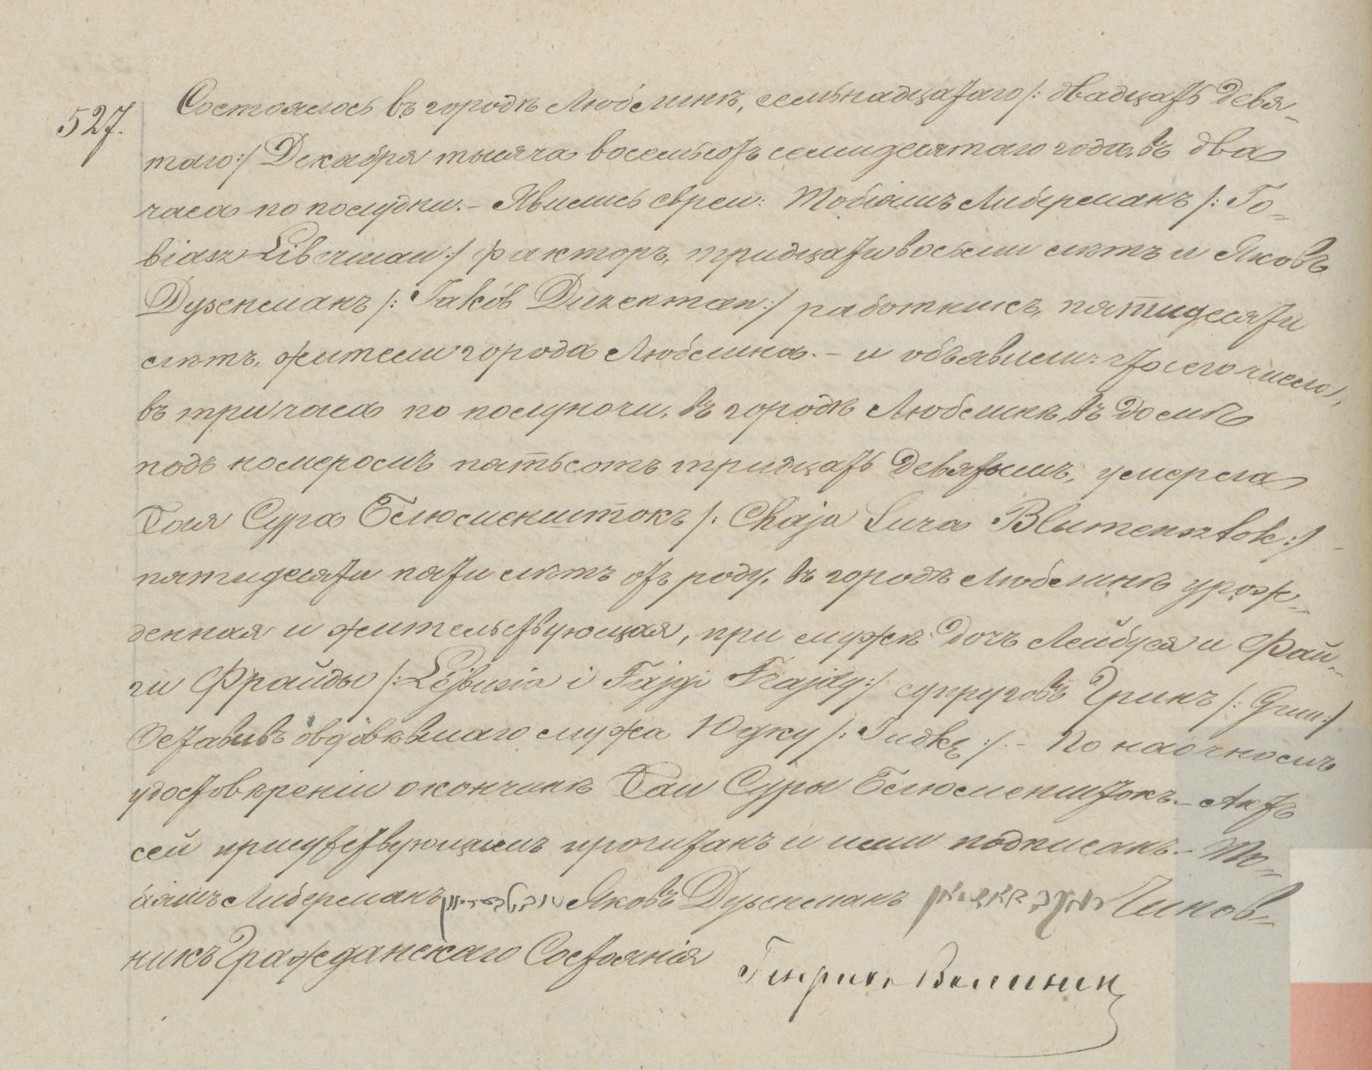 527. Состоялось въ городѣ Люблинѣ, семьнадцатаго /: двадцать девя-
таго :/ Декабря тысяча восемьсотъ семидесятаго года, въ два
часа по полудни. – Явились евреи: Тобіяшъ Либерманъ /: To-
biasz Liberman :/ факторъ, тридцати восьми лѣтъ и Яковъ
Дуженманъ /: Jakób Duzenman :/ работникъ, пятидесяти
лѣтъ, жители города Люблина. – и объявили: что сего числа,
въ три часа по полуночи, въ городѣ Люблинѣ, въ домѣ
подъ номеромъ пятьсотъ тридцать девятымъ, умерла
Хая Сура Блюменштокъ /: Chaja Sura Blumensztok :/ –
пятидесяти пяти лѣтъ отъ роду, въ городѣ Люблинѣ урож-
денная и жительствующая, при мужѣ дочь Лейбуся и Фай-
ги Фрайды /: Lejbusia i Fajgi Frajdy :/ супруговъ Гринъ /: Grin :/
Оставивъ овдовѣвшаго мужа Юдку /: Judkę :/. – По наочномъ
удостовѣреніи о кончинѣ Хаи Суры Блюменштокъ. – Актъ
сей присутствующимъ прочитанъ и ими подписанъ. – То-
біяшъ Либерманъ Яковъ Дуженманъ Чинов-
никъ Гражданскаго Состоянія